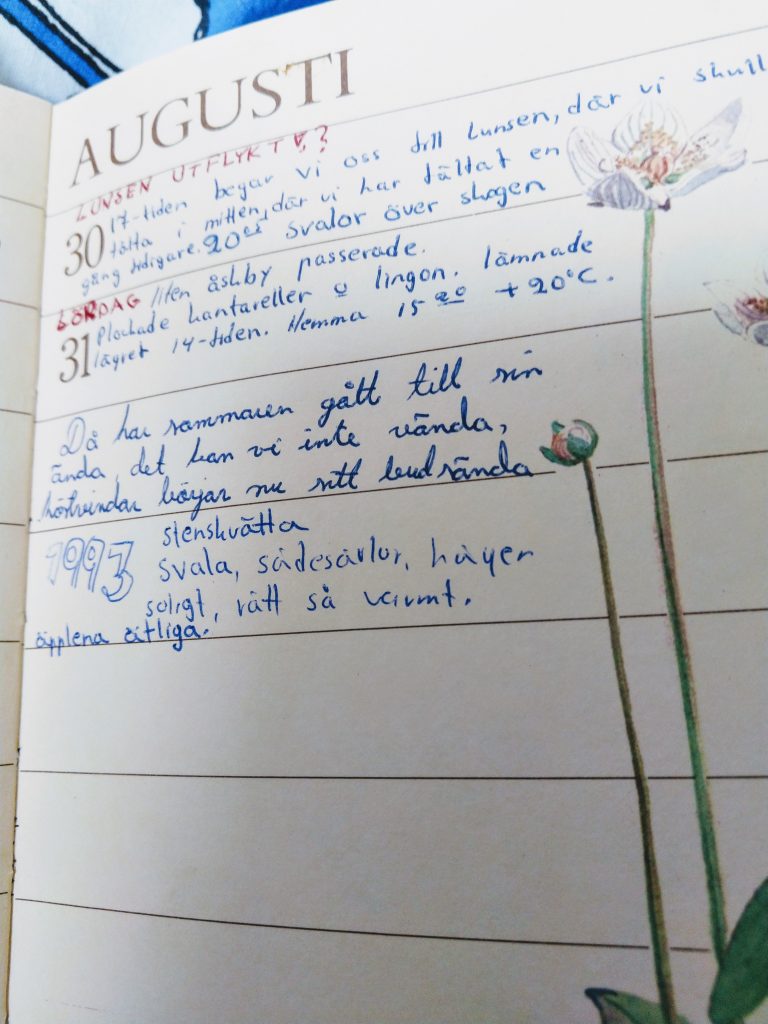 AUGUSTI
LUNSEN UTFLYKT V,?
17-tiden begav vi oss till Lunsen, där vi skull
30 tälta i mitten, där vi har tältat en
gång tidigare. 20⁰⁰ svalor över skogen
LÖRDAG liten åskby passerade.
31 Plockade kantareller o lingon. lämnade
lägret 14-tiden. Hemma 15 20 +20°C.
Då har sommaren gått till sin
ända, det kan vi inte vända,
höstvindar börjar nu sitt budsända
1993 stenskvätta
svala, sädesärlor,
soligt, rätt så varmt.
äpplena ätliga.